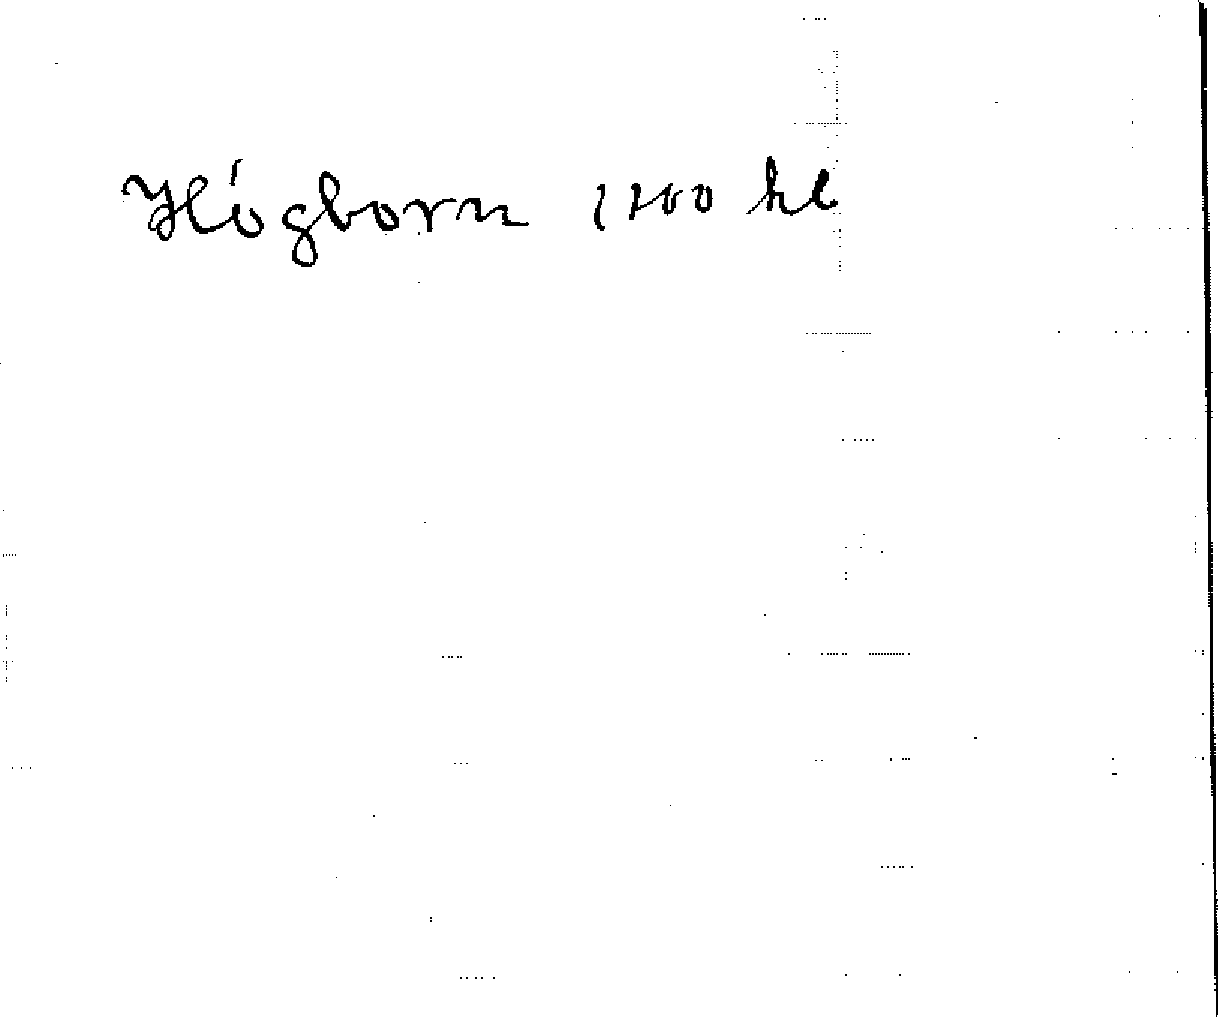 Högborn 1200 hl